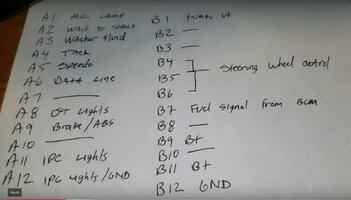 A1 MIL LAMP
A2 Wait to Start
A3 Washer fluid
A4 Tach
A5 Speedo
A6 DATA Line
A7 —
A8 Lights
A9 Brake/ABS
A10 —
A11 IPC Lights
A12 IPC Lights/GND
B1 turn
B2 —
B3 —
B4
B5 Steering wheel control
B6
B7 Fuel signal from BCM
B8 —
B9 B+
B10 —
B11 B+
B12 GND